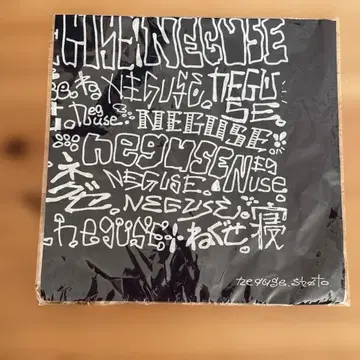 NEGUSE NEGUSE
ね NEGUSE. NEGU
SE
Neg
use. NEGUSE
neguse Neg
use
ネグ NEGUSE.
NEGUSE.
neguse ねぐせ 寝
neguse. shoto